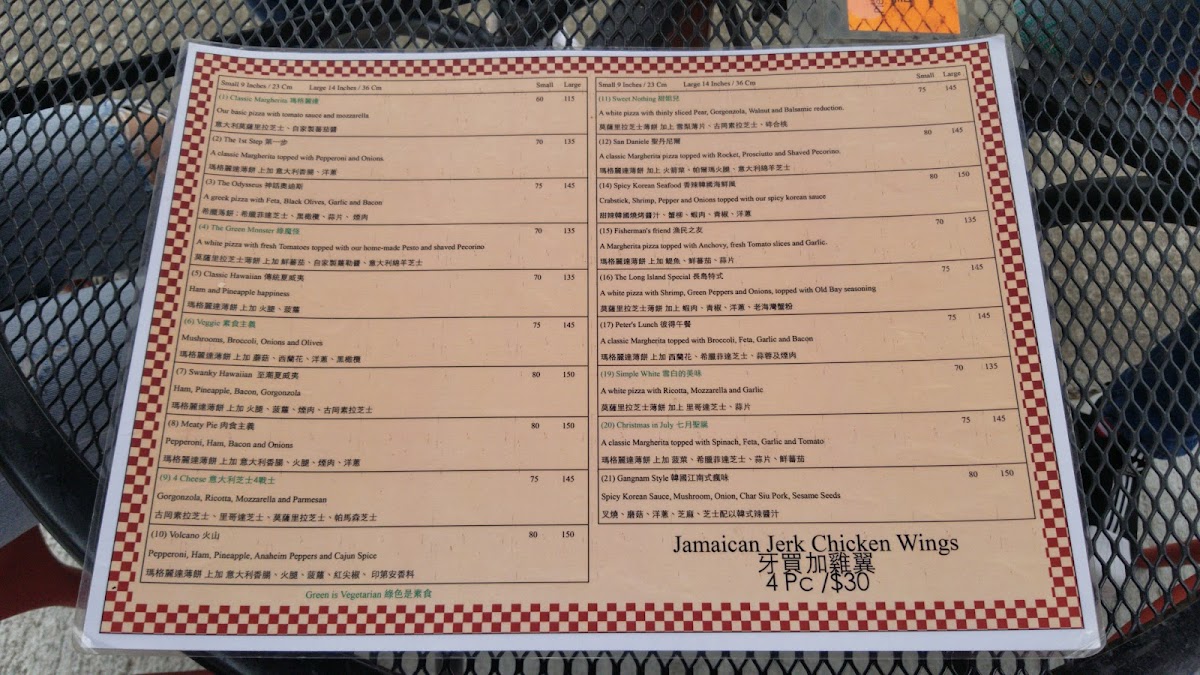 Small 9 Inches / 23 Cm Large 14 Inches / 36 Cm Small Large
(1) Classic Margherita 瑪格麗達 60 115
Our basic pizza with tomato sauce and mozzarella
意大利莫薩里拉芝士、自家製蕃茄醬
(2) The 1st Step 第一步 70 135
A classic Margherita topped with Pepperoni and Onions.
瑪格麗達薄餅 上加 意大利香腸、洋蔥
(3) The Odysseus 神話奧迪斯 75 145
A greek pizza with Feta, Black Olives, Garlic and Bacon
希臘薄餅：希臘菲達芝士、黑橄欖、蒜片、 煙肉
(4) The Green Monster 綠魔怪 70 135
A white pizza with fresh Tomatoes topped with our home-made Pesto and shaved Pecorino
莫薩里拉芝士薄餅 上加 鮮蕃茄、自家製羅勒醬、意大利綿羊芝士
(5) Classic Hawaiian 傳統夏威夷 70 135
Ham and Pineapple happiness
瑪格麗達薄餅 上加 火腿、菠蘿
(6) Veggie 素食主義 75 145
Mushrooms, Broccoli, Onions and Olives
瑪格麗達薄餅 上加 蘑菇、西蘭花、洋蔥、黑橄欖
(7) Swanky Hawaiian 至潮夏威夷 80 150
Ham, Pineapple, Bacon, Gorgonzola
瑪格麗達薄餅 上加 火腿、菠蘿、煙肉、古岡素拉芝士
(8) Meaty Pie 肉食主義 80 150
Pepperoni, Ham, Bacon and Onions
瑪格麗達薄餅 上加 意大利香腸、火腿、煙肉、洋蔥
(9) 4 Cheese 意大利芝士4戰士 75 145
Gorgonzola, Ricotta, Mozzarella and Parmesan
古岡素拉芝士、里哥達芝士、莫薩里拉芝士、帕馬森芝士
(10) Volcano 火山 80 150
Pepperoni, Ham, Pineapple, Anaheim Peppers and Cajun Spice
瑪格麗達薄餅 上加 意大利香腸、火腿、菠蘿、紅尖椒、 印第安香料
Green is Vegetarian 綠色是素食
Small 9 Inches / 23 Cm Large 14 Inches / 36 Cm Small Large
(11) Sweet Nothing 甜姐兒 75 145
A white pizza with thinly sliced Pear, Gorgonzola, Walnut and Balsamic reduction.
莫薩里拉芝士薄餅 加上 雪梨薄片、古岡素拉芝士、合桃
(12) San Daniele 聖丹尼爾 80 145
A classic Margherita pizza topped with Rocket, Prosciutto and Shaved Pecorino.
瑪格麗達薄餅 加上 火箭菜、帕爾瑪火腿、意大利綿羊芝士
(14) Spicy Korean Seafood 香辣韓國海鮮風 80 150
Crabstick, Shrimp, Pepper and Onions topped with our spicy korean sauce
甜辣韓國燒烤醬汁、蟹柳、蝦肉、青椒、洋蔥
(15) Fisherman's friend 漁民之友 70 135
A Margherita pizza topped with Anchovy, fresh Tomato slices and Garlic.
瑪格麗達薄餅 上加 鯷魚、鮮蕃茄、蒜片
(16) The Long Island Special 長島特式 75 145
A white pizza with Shrimp, Green Peppers and Onions, topped with Old Bay seasoning
莫薩里拉芝士薄餅 加上 蝦肉、青椒、洋蔥、老海灣蟹粉
(17) Peter's Lunch 彼得午餐 75 145
A classic Margherita topped with Broccoli, Feta, Garlic and Bacon
瑪格麗達薄餅 上加 西蘭花、希臘菲達芝士、蒜蓉及煙肉
(19) Simple White 雪白的美味 70 135
A white pizza with Ricotta, Mozzarella and Garlic
莫薩里拉芝士薄餅 加上 里哥達芝士、蒜片
(20) Christmas in July 七月聖誕 75 145
A classic Margherita topped with Spinach, Feta, Garlic and Tomato
瑪格麗達薄餅 上加 菠菜、希臘菲達芝士、蒜片、鮮蕃茄
(21) Gangnam Style 韓國江南式瘋味 80 150
Spicy Korean Sauce, Mushroom, Onion, Char Siu Pork, Sesame Seeds
叉燒、磨菇、洋蔥、芝麻、芝士配以韓式辣醬汁
Jamaican Jerk Chicken Wings
牙買加雞翼
4 Pc /$30